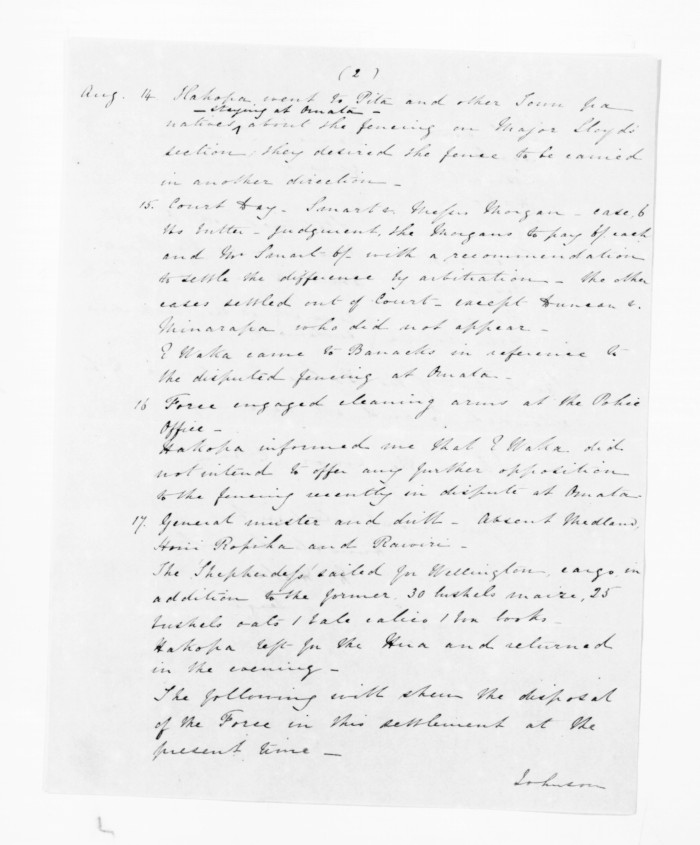 (2)
Aug. 14 Hakopa went to Pita and other Town pa
– staying at Omata –
natives, about the fencing on Major Lloyd's
section; they desired the fence to be carried
in another direction –
15. Court Day – Smart v. Messrs Morgan – case, 6
judgment, the Morgans to pay 6/ each
and Mr Smart 6/ with a recommendation
to settle the difference by arbitration – the other
cases settled out of Court – except Duncan v.
Minarapa, who did not appear –
E Waka came to Barracks in reference to
the disputed fencing at Omata –
16 Force engaged cleaning arms at the Police
Office –
Hakopa informed me that E Waka did
not intend to offer any further opposition
to the fencing recently in dispute at Omata
17. General muster and drill – Absent Medland,
Honi Ropiha and Rawiri –
The Shepherdess sailed for Wellington, cargo, in
addition to the former, 30 bushels maize, 25
bushels oats 1 bale calico 1 box books –
Hakopa left for the Hua and returned
in the evening –
The following will shew the disposal
of the Force in this settlement at the
present time –
Johnson